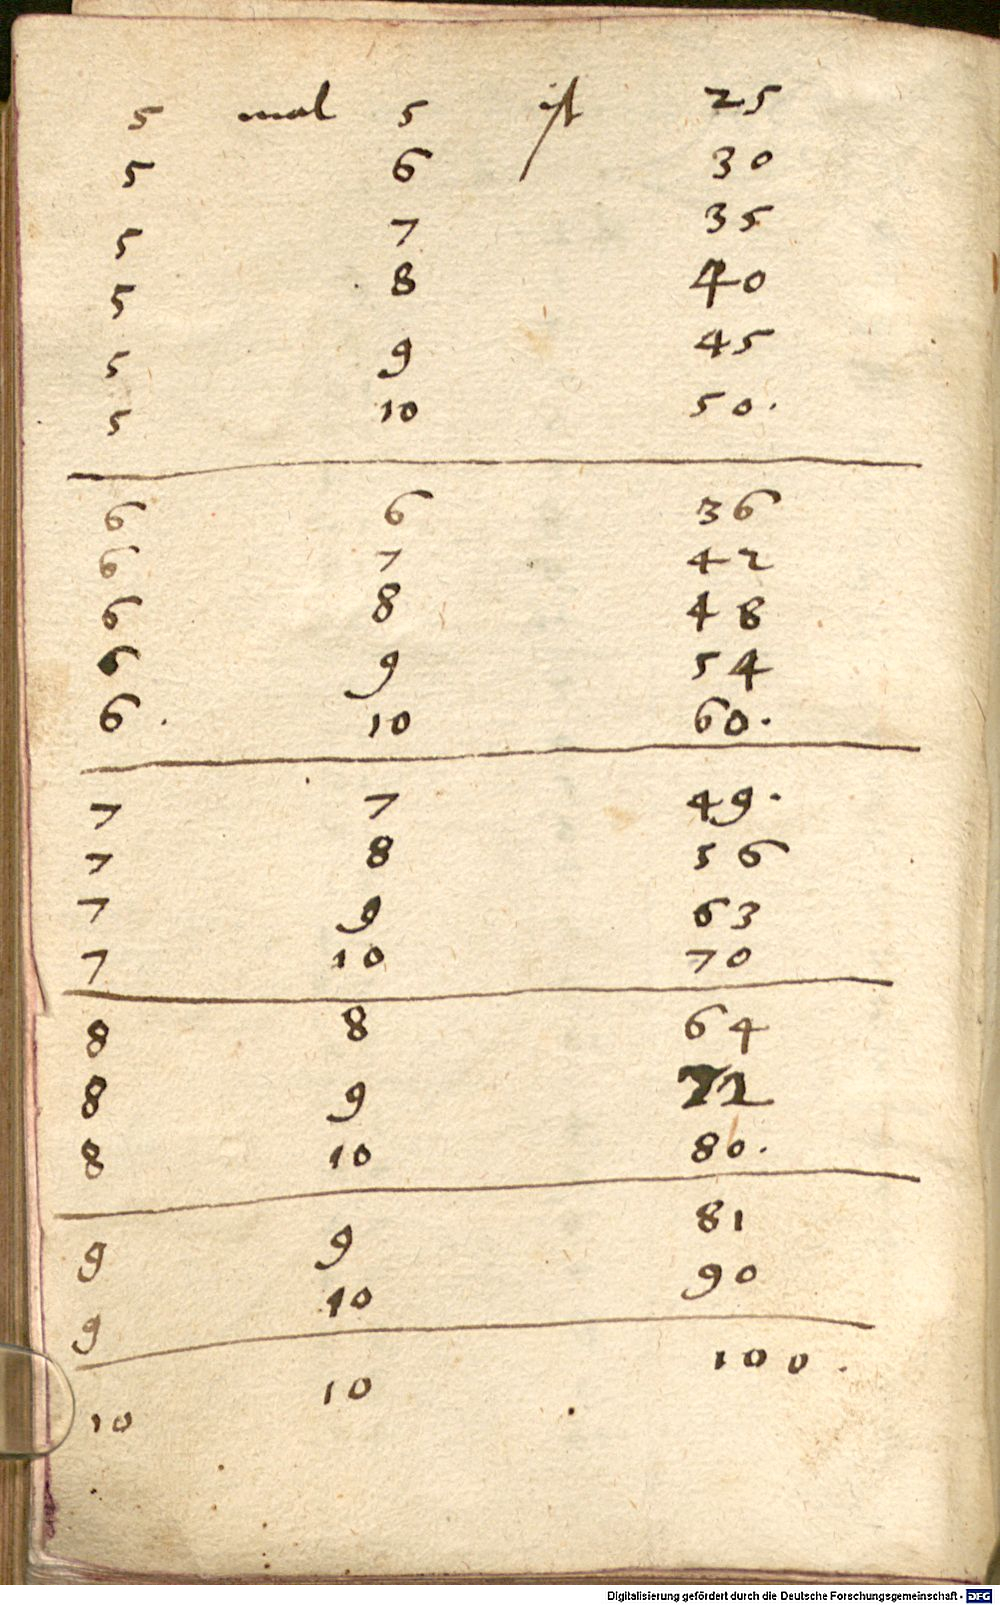 5 mal 5 ist 25
5 6 30
5 7 35
5 8 40
5 9 45
5 10 50.
6 6 36
6 7 42
6 8 48
6 9 54
6 10 60.
7 7 49.
7 8 56
7 9 63
7 10 70
8 8 64
8 9 72
8 10 80.
9 9 81
9 10 90
10 10 100.
Digitalisierung gefördert durch die Deutsche Forschungsgemeinschaft - DFG